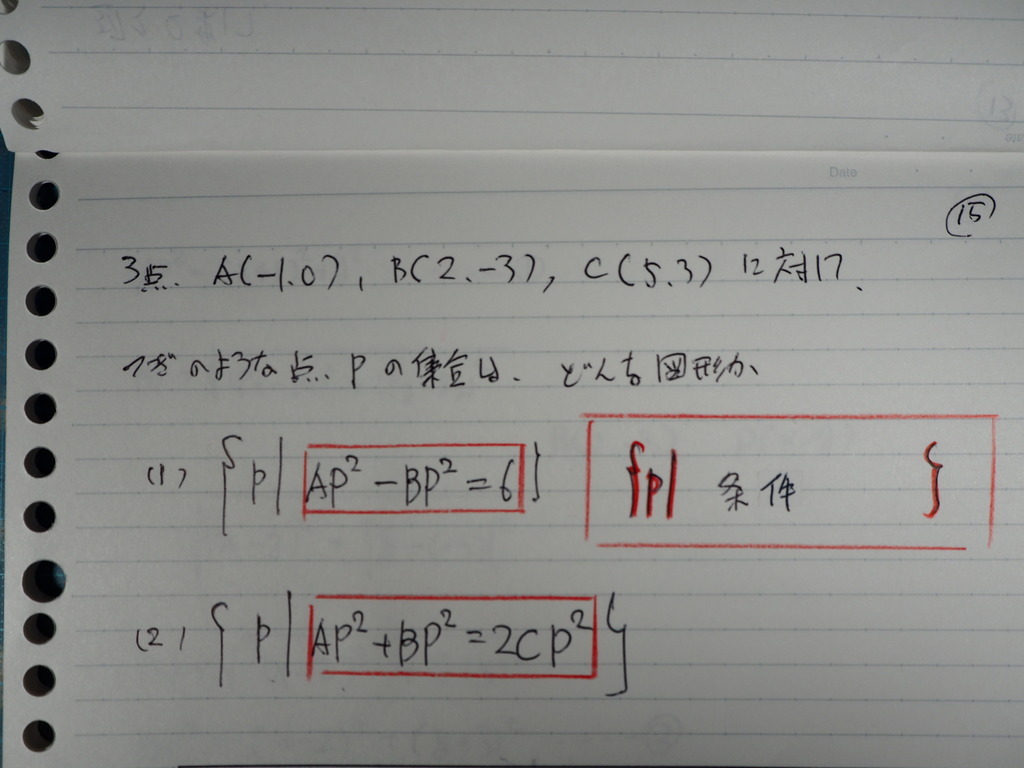 Date
⑮
3点 A(-1.0), B(2.-3), C(5.3) に対し
つぎのような点 Pの集合は、どんな図形か、
(1) { P | AP²-BP²=6 } { P | 条件 }
(2) { P | AP²+BP²=2CP² }